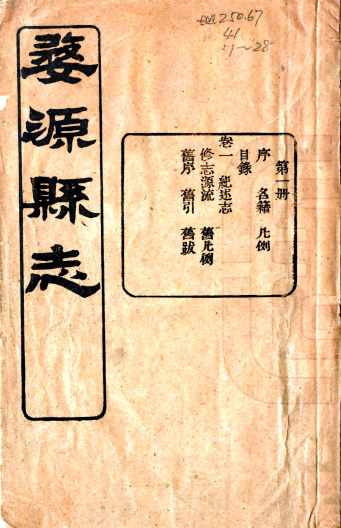 250.67
41
:1~28
第一册
序 名籍 凡例
目錄
卷一 紀述志
修志源流 舊凡例
舊序 舊引 舊跋
婺源縣志